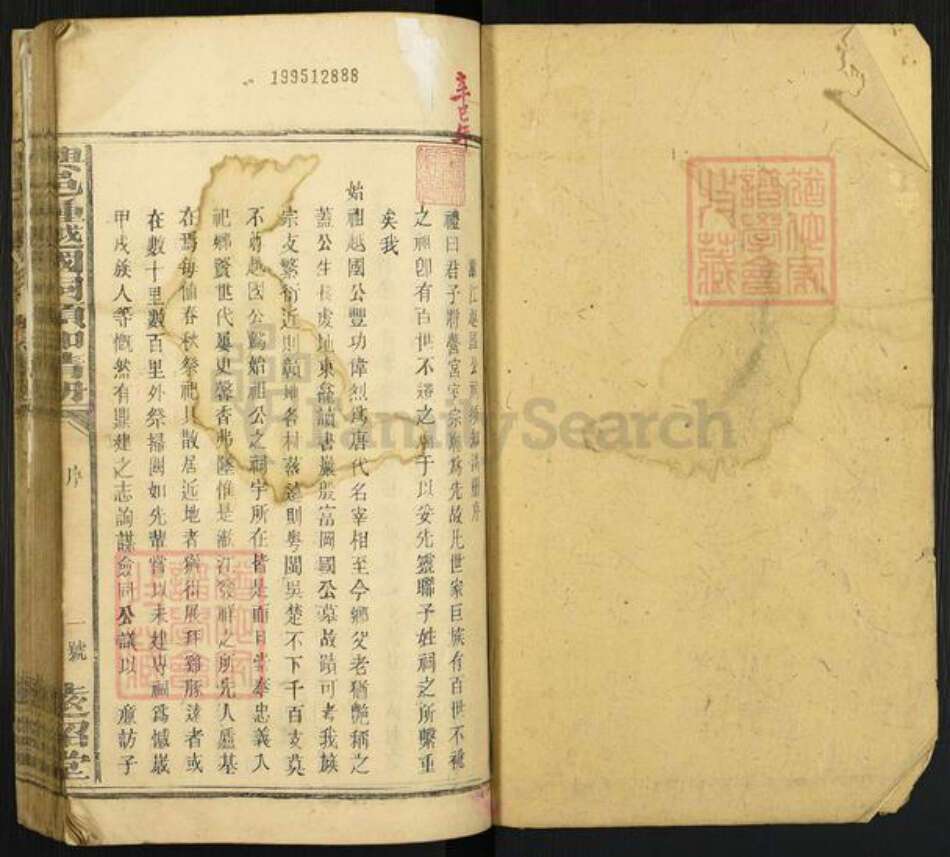 199512888
辛巳年
越國公祠
禮曰君子將營宮室宗廟為先故凡世家巨族有百世不祧
之祖卽有百世不遷之廟于以妥先靈聯子姓祠之所繫重
矣我
始祖越國公豐功偉烈為唐代名宰相至今鄉父老猶艷稱之
蓋公生長虔地東龕讀書巖殷富岡國公墓故蹟可考我族
宗支繁衍近則贛地各村落遠則粵閩吳楚不下千百支莫
不尊越國公為始祖公之祠宇所在皆是而日崇奉忠義入
祀鄉賢世代屢更馨香弗墜惟是瀲江發祥之所先人廬基
在焉每値春秋祭祀其散居近地者猶得展拜雞豚遠者或
在數十里數百里外祭掃闕如先輩嘗以未建專祠為憾歲
甲戌族人等慨然有鼎建之志詢謀僉同公議以 重訪子
序
一號
FamilySearch
猶他家譜學會收藏